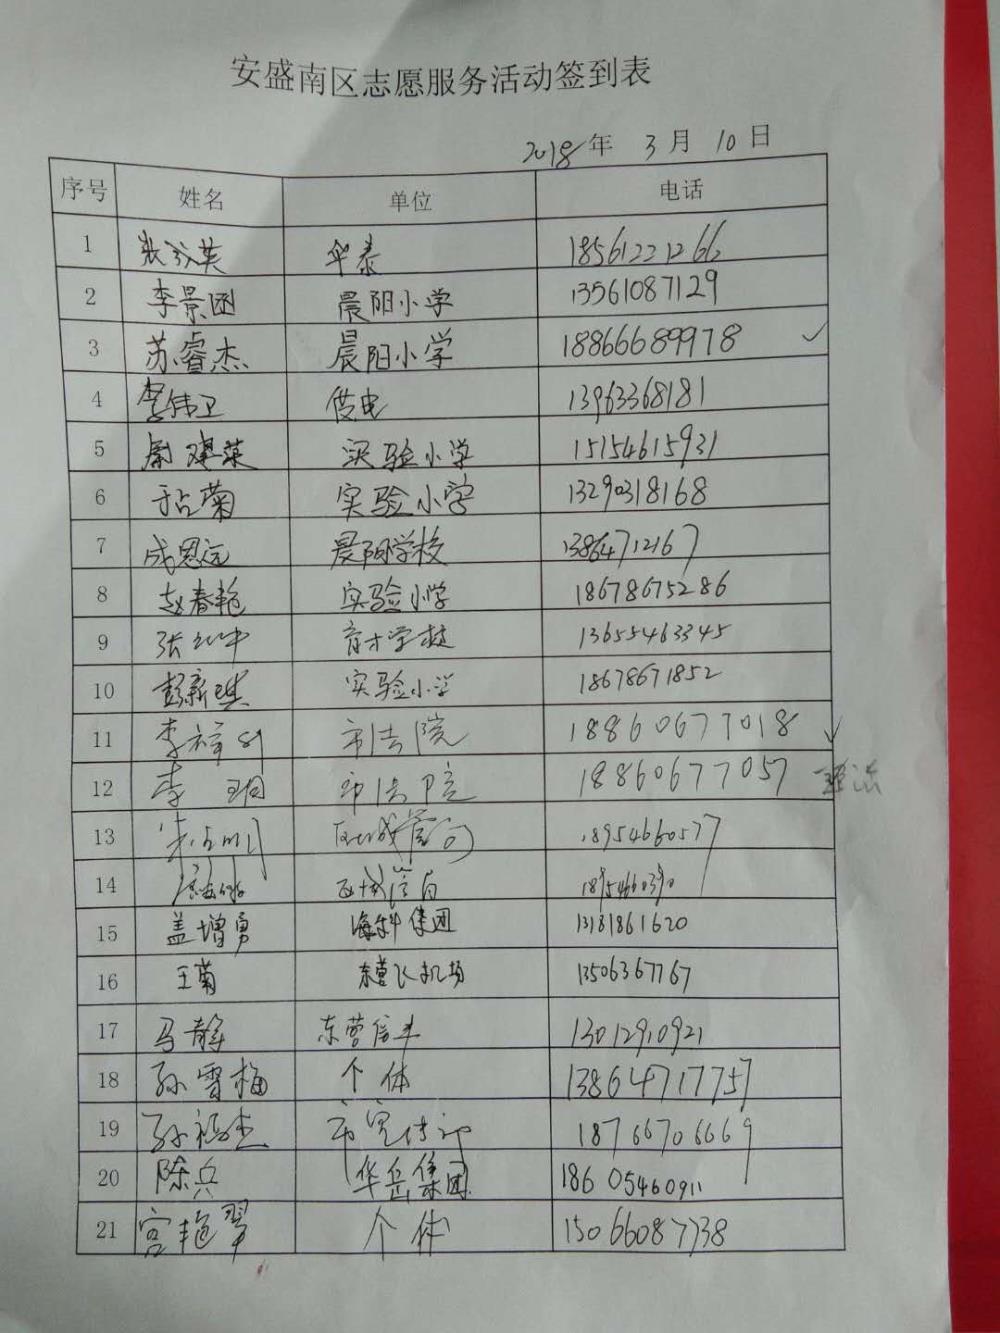 安盛南区志愿服务活动签到表
2018年 3月 10日
序号 姓名 单位 电话
1 张汝英 华泰 18561221266
2 李景函 晨阳小学 13561087129
3 苏睿杰 晨阳小学 18866689978 ✓
4 李伟卫 供电 13963368181
5 实验小学 15154615931
6 于占菊 实验小学 13290318168
7 成恩远 晨阳学校 13864712167
8 赵春艳 实验小学 18678675286
9 张红中 育才学校 13655463345
10 彭新琪 实验小学 18678671852
11 李祥 市法院 18860677018 ✓
12 李玥 市法院 18860677057
13 18954660577
14 18954660390
15 盖增勇 海科集团 13181861620
16 王菊 东营飞机场 13506367767
17 马静 东营信丰 13012910921
18 孙雪梅 个体 13864717757
19 孙福杰 市 18766706669
20 陈兵 华岳集团 18605460911
21 宫艳翠 个体 15066087738